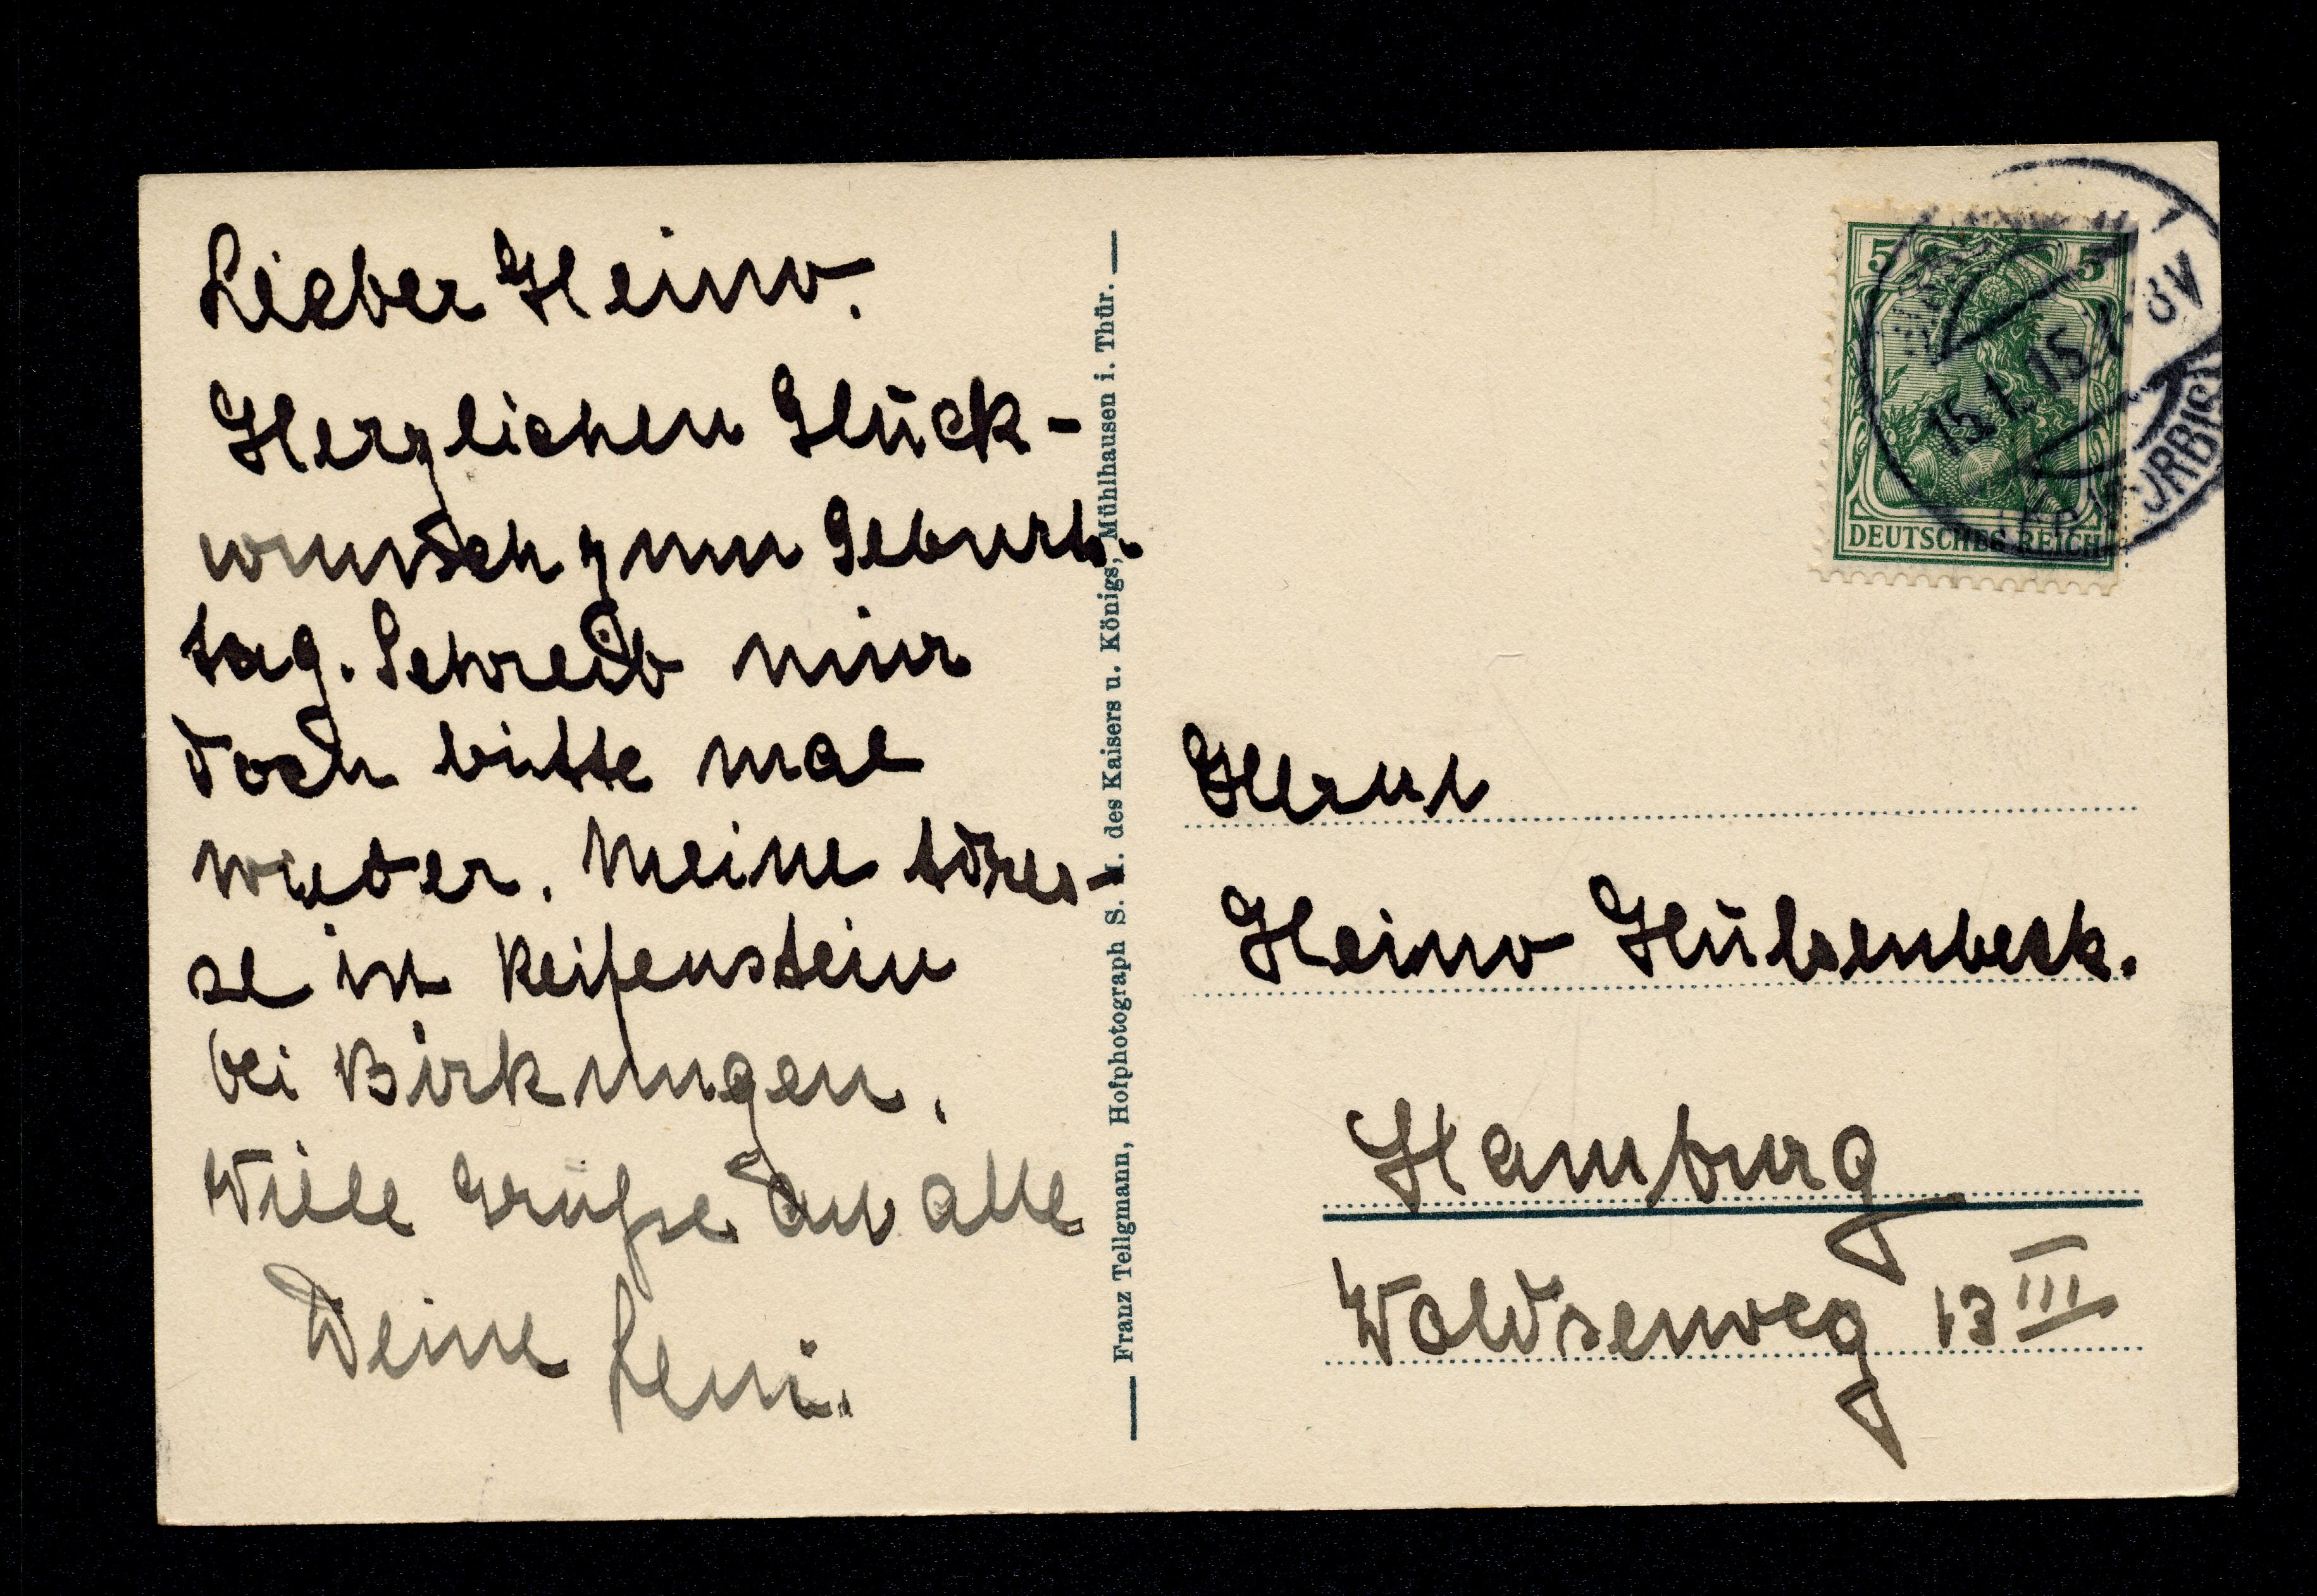 Lieber Heino.
Herzlichen Glück-
wunsch zum Geburts-
tag. Schreib mir
doch bitte mal
wieder. Meine Adres-
se ist Reifenstein
bei Birkungen.
Viele Grüße an alle
Deine Leni.
Franz Tellgmann, Hofphotograph S. M. des Kaisers u. Königs, Mühlhausen i. Thür.
5 5
DEUTSCHES REICH
15.1.15. 7-8V
Herrn
Heino Hülsenbeck.
Hamburg
Woldsenweg 13 III